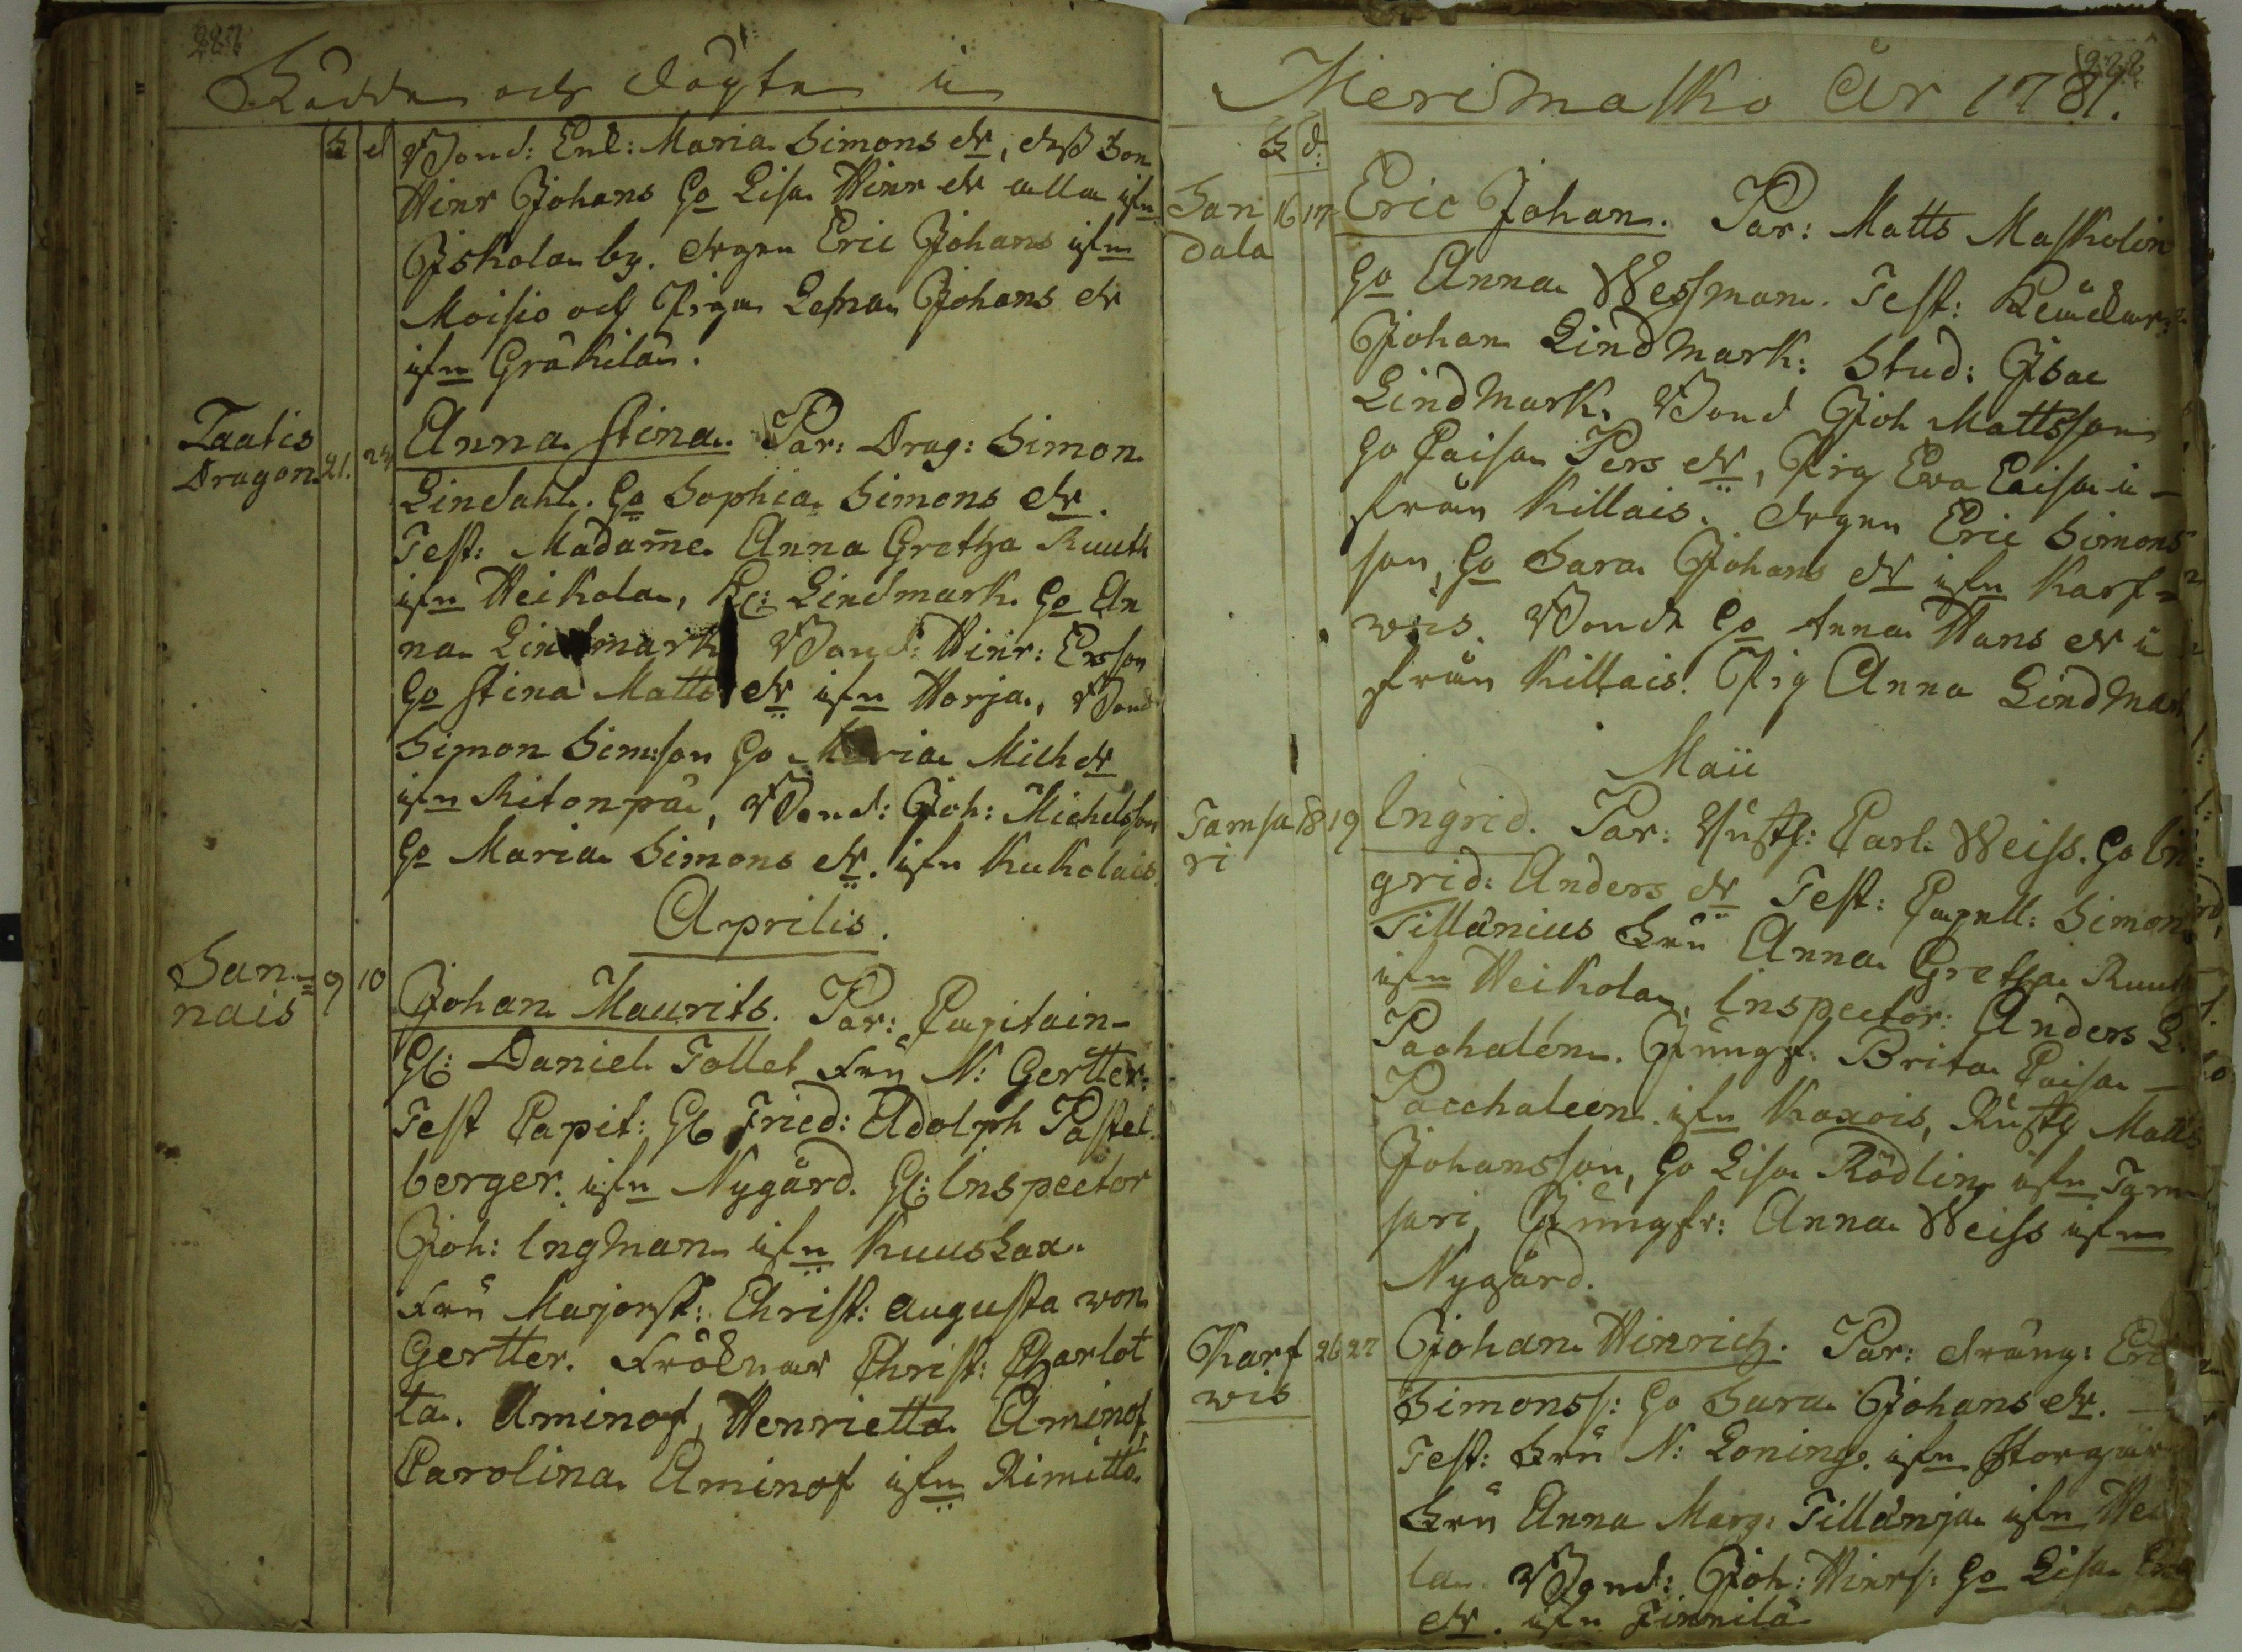 227
Födde och döpte i
F d
Bond: Enk: Maria Simons dr, dess Son
Hinr Johans h:o Lisa Hinr dr alla ifrn
Iskola by. Drgen Eric Johans ifrn
Moisio och Pigan Lena Johans dr
ifrn Gräkilä.
Taatis
Dragon. 21. 24
Anna Stina. Par: Drag: Simon
Lindahl. h:o Sophia Simons dr.
Test: Madame Anna Gretha Ruuth
ifrn Heikola, Lindmark. h:o An
na Lindmark Bond: Hinr: Ersson
h:o Stina Matts dr ifrn Horja, Bond
Simon Simsson h:o Maria Mich dr
ifrn Ritonpä, Bond: Joh: Michelsson
h:o Maria Simons dr. ifrn Kukolais
Aprilis.
San=
nais 9 10
Johan Maurits. Par: Capitain
H: Daniel Tollet Fru N: Gertter.
Test Capit: H Fried: Adolph Pastel
berger. ifrn Nygård. H: Inspector
Joh: Ingman ifrn Kuuslax.
Fru Majorsk: Christ: Augusta von
Gertter. Fröknar Christ: Charlot
ta. Aminof, Henrietta Aminof,
Carolina Aminof ifrn Rimitto.
228
Merimasko År 1781.
F d:
San
dala 16 17
Eric Johan. Par: Matts Maskolin
h:o Anna Wessman. Test:
Johan Lindmark: Stud: Isac
Lindmark. Bond Joh Mattsson
h:o Caisa Pers dr, Pig Eva Caisa i
från Killais. Drgen Eric Simons
son, h:o Sara Johans dr ifrn Karf=
wis. Bond h:o Anna Hans dr i
från Killais. Pig Anna Lindmark
Maii
Tamsa
ri 18 19
Ingrid. Par: Rustl: Carl Weiss. h:o In
grid: Anders dr Test: Capell: Simon
Tillänius Fru Anna Gretha Ruuth
ifrn Heikola, Inspector: Anders L.
Pachalén. Jungf: Brita Caisa
Pacchaleen ifrn Koxois, Rustl Matts
Johansson, h:o Lisa Rödlin ifrn Tam
sari, Jungfr: Anna Weiss ifrn
Nygård.
Karf
wis 26 27
Johan Hinrich. Par: dräng: Eri
Simonss: h:o Sara Johans dr.
Test: Fru N: Loning. ifrn Storgår
Fru Anna Marg: Tillänja ifrn Hei
la. Bond: Joh: Hinrs: h:o Lisa
dr. ifrn Finnilä